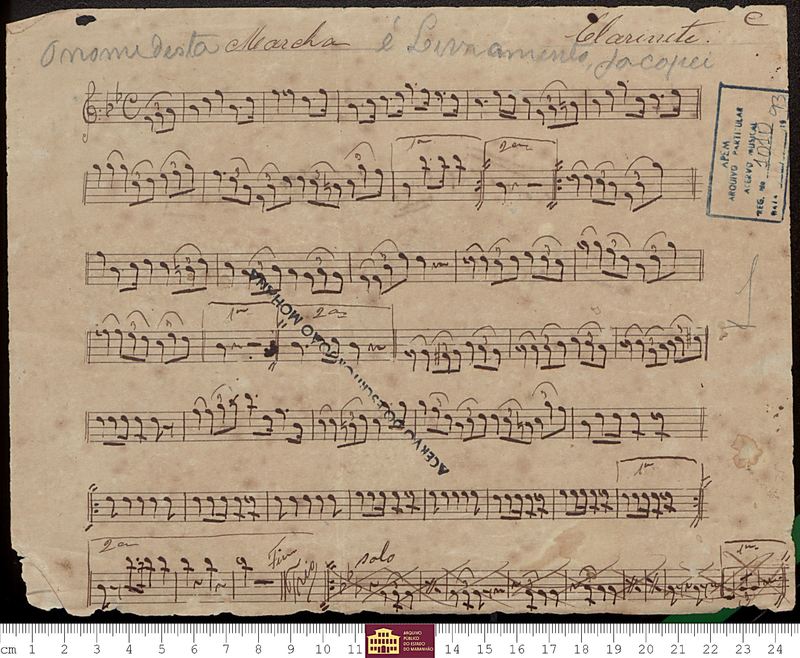 Clarinete.
O nome desta Marcha é Livramento, Jacopei
APEM
ARQUIVO PARTICULAR
ACERVO MUSICAL
REG. No. 1010 93
1ª 2ª
1ª 2ª
ACERVO JOÃO MOHANA
1ª
2ª Fim Trio solo 1ª
cm 1 2 3 4 5 6 7 8 9 10 11 14 15 16 17 18 19 20 21 22 23 24
ARQUIVO
PÚBLICO
DO ESTADO
DO MARANHÃO